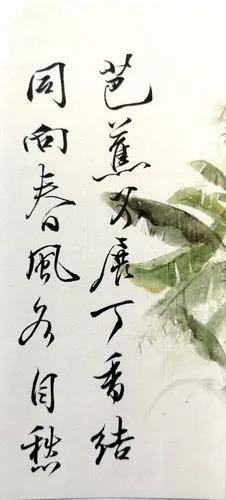 芭蕉不展丁香結
同向春風各自愁